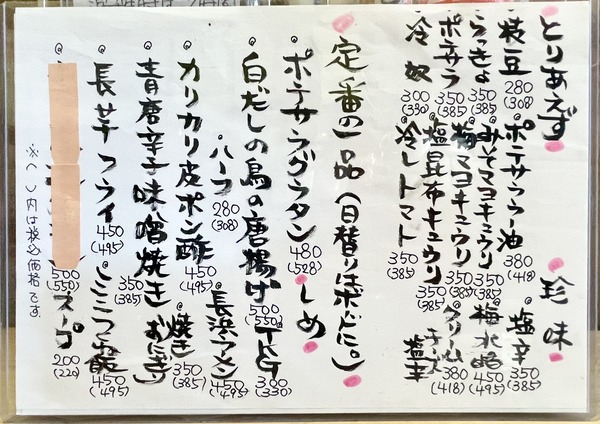 とりあえず
枝豆 280 (308)
らっきょ 350 (385)
ポテサラ 350 (385)
冷奴 300 (330)
ポテサララー油 380 (418)
みそマヨキュウリ 350 (385)
梅マヨキュウリ 350 (385)
塩昆布キュウリ 350 (385)
冷しトマト 350 (385)
珍味
塩辛 350 (385)
梅水晶 450 (495)
クリームチーズ塩辛 380 (418)
定番の一品(日替りはボードに。)
ポテサラグラタン 480 (528)
白だしの鳥の唐揚げ 500 (550)
ハーフ 280 (308)
カリカリ皮ポン酢 450 (495)
青唐辛子味噌焼き 350 (385)
長芋フライ 450 (495)
500 (550)
しめ
300 (330)
長浜ラーメン 450 (495)
焼きおにぎり 350 (385)
ミニ 飯 450 (495)
スープ 200 (220)
※( )内は税込価格です